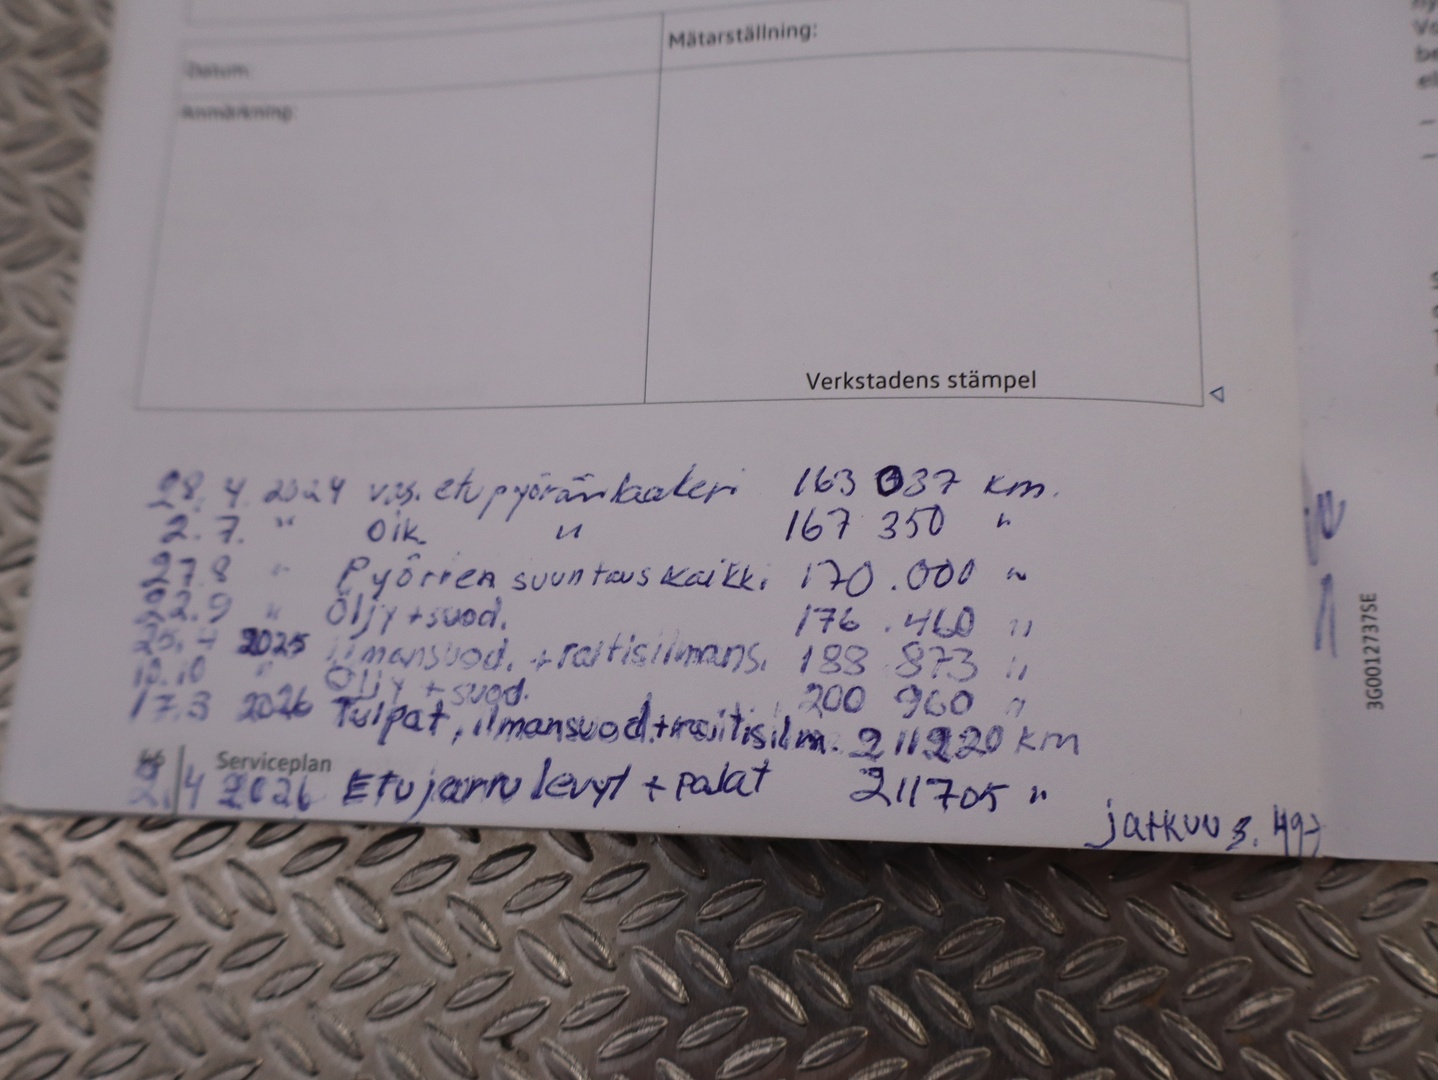 Mätarställning:
Datum:
Anmärkning:
Verkstadens stämpel
28.4.2024 vas. etupyöränlaakeri 163 037 km.
2.7. " oik. " 167 350 "
27.8 " Pyörien suuntaus kaikki 170.000 "
22.9 " Öljy + suod. 176.460 "
25.4 2025 ilmansuod. + raitisilmans. 188 873 "
10.10 " Öljy + suod. 200 960 "
17.3 2026 Tulpat, ilmansuod.+raitisilm. 211220 km
Serviceplan
2.4 2026 Etujarru levyt + palat 211705 "
jatkuu s. 49→
3G0012737SE